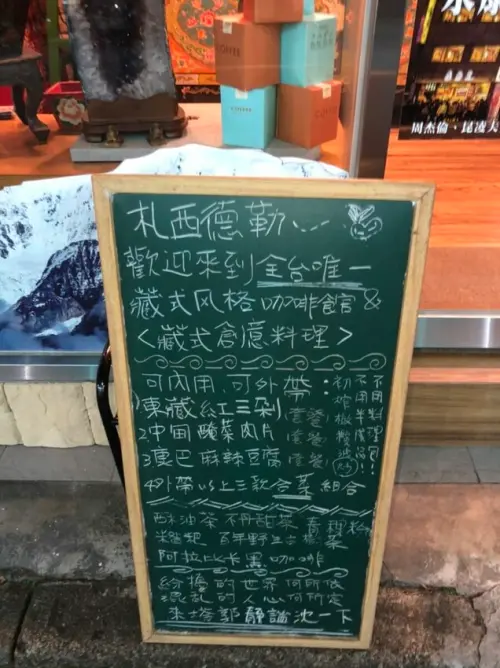 周杰倫、昆凌大
札西德勒、、---
歡迎來到全台唯一
藏式风格咖啡館 &
<藏式創意料理>
可內用.可外帶:
1東藏紅三剁 套餐
2中甸醃菜肉片 套餐
3夏巴麻辣豆腐 套餐
4外帶以上三款合菜組合
不用料理包!!
不用半成品!
初榨椒
酥油茶 不丹甜茶
糌粑 百年野生古樹茶
阿拉比卡黑咖啡
紛擾的世界何所依
混亂的人心何所定
來塔郭靜謐沈一下